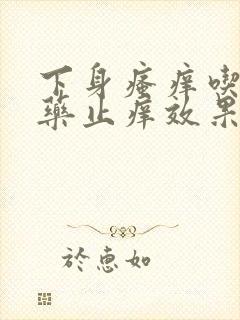 下身瘙痒喫
藥止痒效果
於惠如